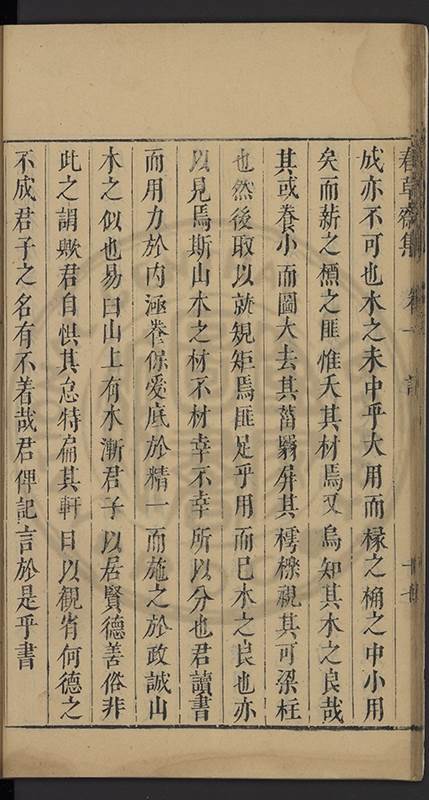 春草齋集 卷一 記
成亦不可也木之未中乎大用而椽之桷之中小用
矣而薪之槱之匪惟夭其材焉又烏知其木之良哉
其或養小而圖大去其菑翳屏其樗櫟視其可梁柱
也然後取以就規矩焉匪足乎用而已木之良也亦
以見焉斯山木之材不材幸不幸所以分也君讀書
而用力於内涵養保愛底於精一而施之於政誠山
木之似也易曰山上有木漸君子以居賢德善俗非
此之謂歟君自惧其怠特扁其軒日以觀省何德之
不成君子之名有不着哉君俾記言於是乎書